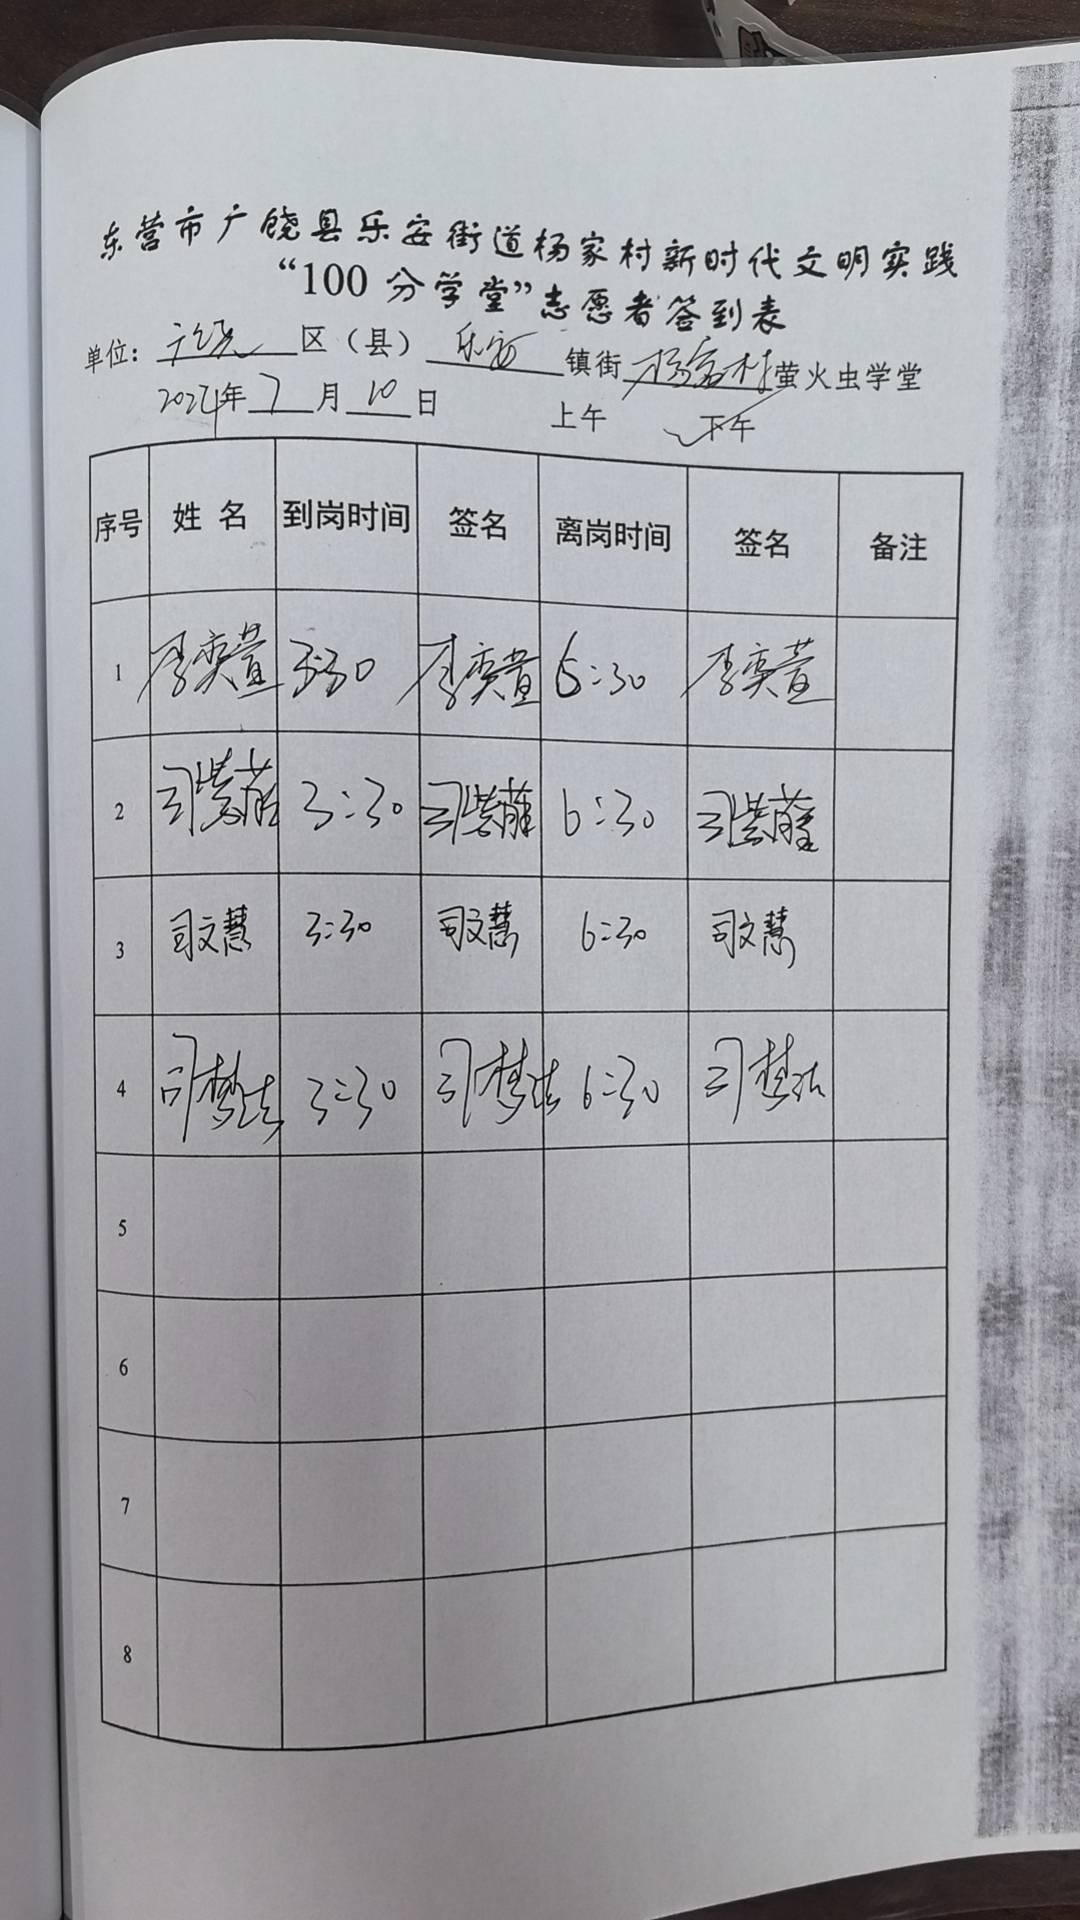 东营市广饶县乐安街道杨家村新时代文明实践
“100分学堂”志愿者签到表
单位：广饶 区（县） 乐安 镇街 杨家村 萤火虫学堂
年 7 月 10 日 上午 下午
序号 姓名 到岗时间 签名 离岗时间 签名 备注
1 李奕萱 3:30 李奕萱 6:30 李奕萱
2 司紫 3:30 司紫 6:30 司紫
3 司文慧 3:30 司文慧 6:30 司文慧
4 司梦洁 3:30 司梦洁 6:30 司梦洁
5
6
7
8